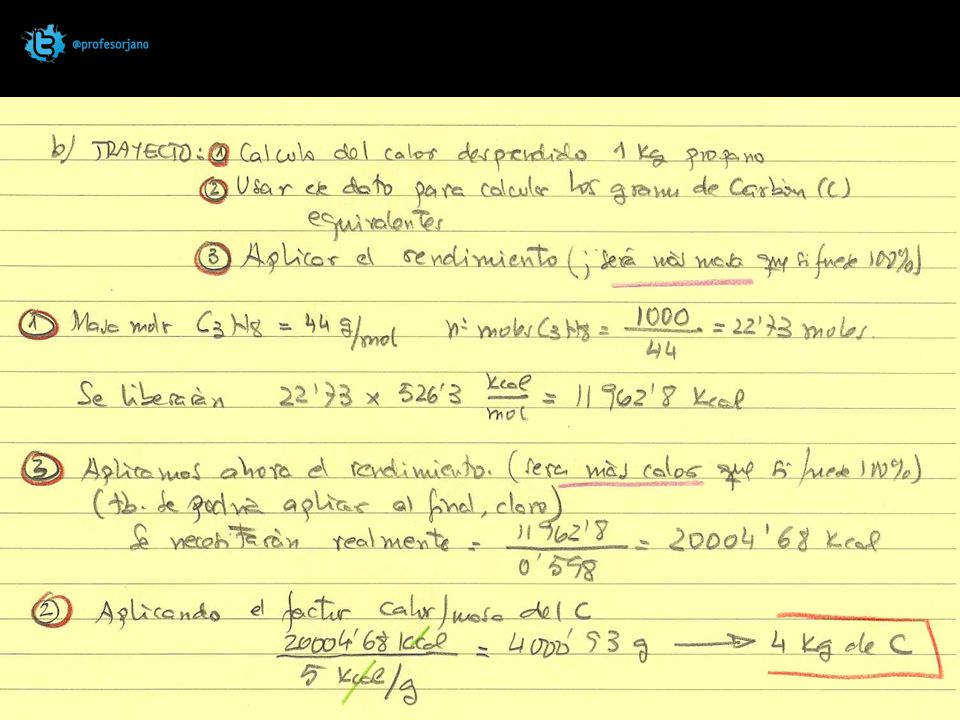 @profesorjano
b/ TRAYECTO: ① Calculo del calor desprendido 1 Kg propano
② Usar ese dato para calcular los gramos de Carbón (C)
equivalentes
③ Aplicar el rendimiento (¡será más masa que si fuese 100%)
① Masa molr C3H8 = 44 g/mol nº moles C3H8 = 1000/44 = 22'73 moles.
Se liberarán 22'73 x 526'3 Kcal/mol = 11962'8 Kcal
③ Aplicamos ahora el rendimiento. (será más calor que si fuese 100%)
(tb. se podría aplicar al final, claro)
Se necesitarán realmente = 11962'8/0'598 = 20004'68 Kcal
② Aplicando el factor calor/masa del C
20004'68 Kcal/5 Kcal/g = 4000'93 g → 4 Kg de C